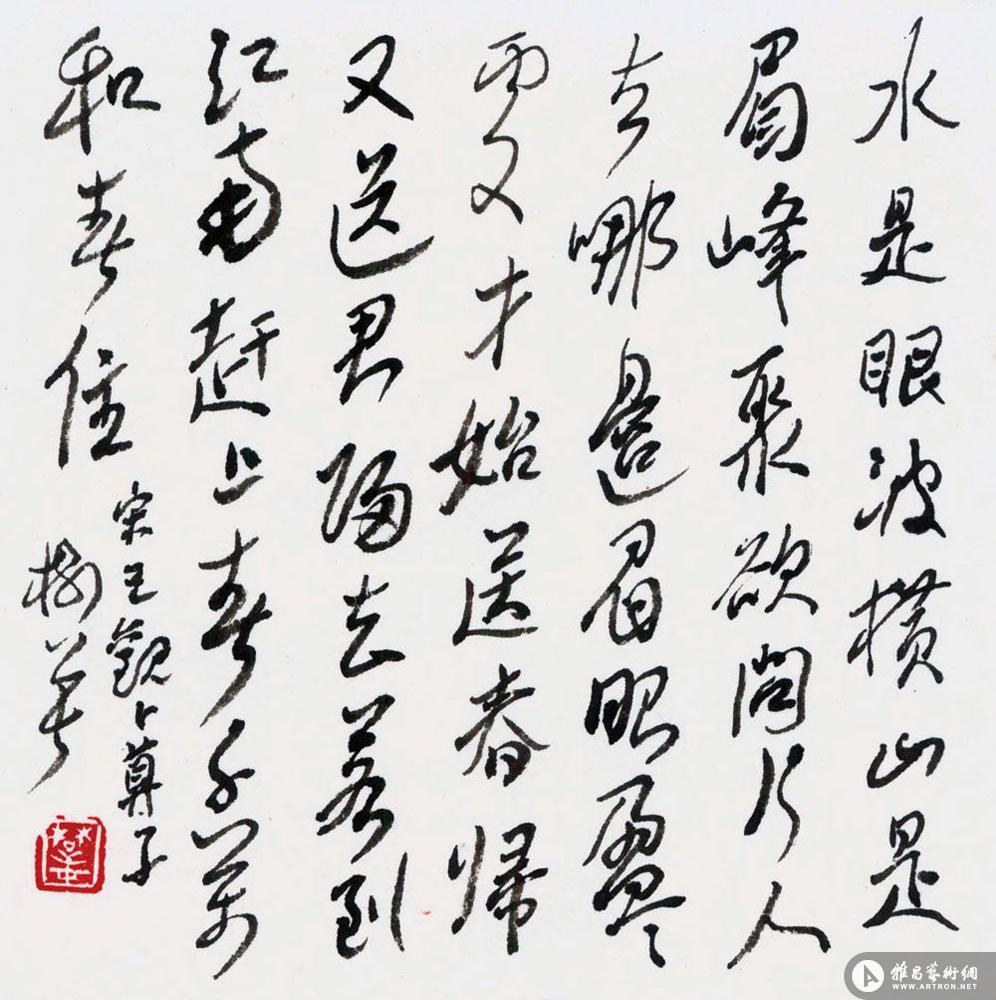 水是眼波横山是
眉峰聚欲问行人
去哪邊眉眼盈々
處才始送春帰
又送君歸去若到
江南赶上春千萬
和春住
宋王觀卜算子
雅昌藝術網
WWW.ARTRON.NET